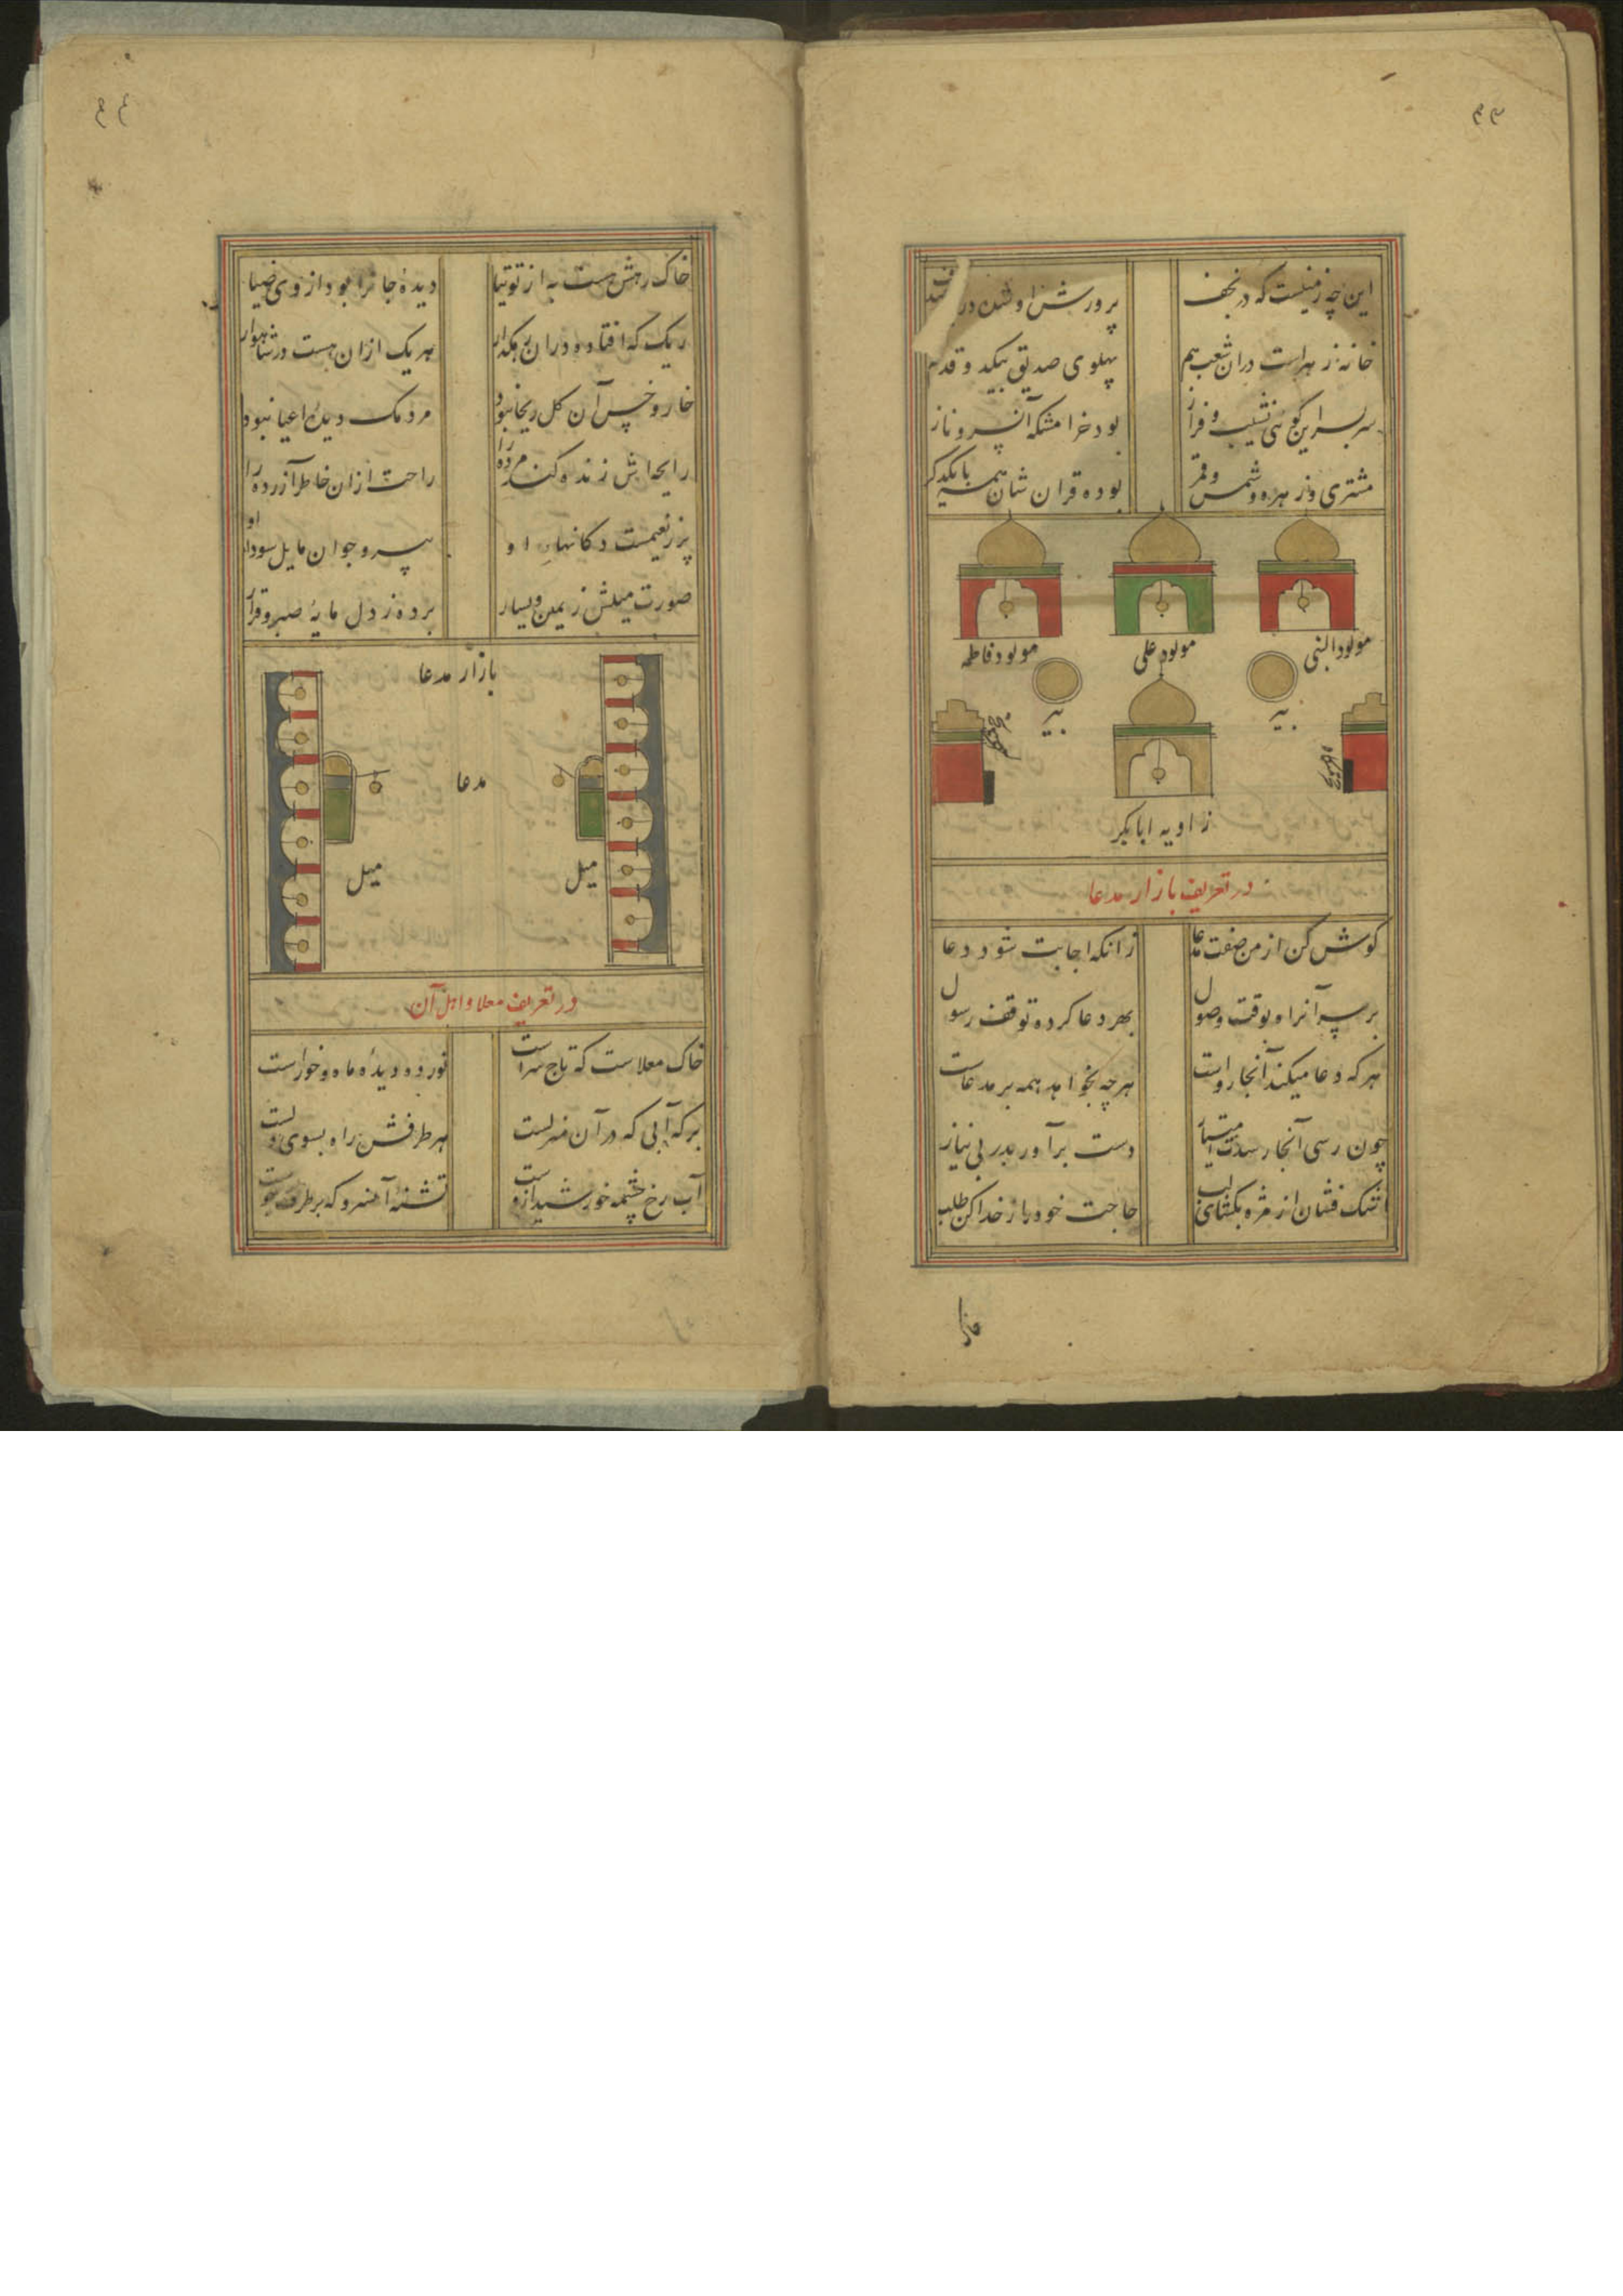 ۴۳
این چه زمینست که در نجف
پرورش او شده در
خانه زهراست دران شعب هم
پهلوی صدیق بیکد و قدم
سربسر این کوی نشیب و فراز
بود خرامشکه آن سرو ناز
مشتری و زهره و شمس و قمر
بوده قران شان همه با یکدکر
مولود النبی
مولود علی
مولود فاطمه
بیر
بیر
زاویه ابابکر
در تعریف بازار مدعا
کوش کن از من صفت مدعا
زانکه اجابت شود دعا
بر سر آن راه بوقت وصول
بهر دعا کرده توقف رسول
هر که دعا میکند آنجا رواست
هرچه بخواهد همه بر مدعاست
چون رسی آنجا رسدت امتیاز
دست برآور بدر بی نیاز
اشک فشان از مژه بکشای لب
حاجت خود را ز خدا کن طلب
۴۴
خاک رهش هست به از توتیا
دیدهٔ جانرا بود از وی ضیا
ریک که افتاده دران رهکذار
هر یک ازان هست در شاهوار
خار و خس آن کل ریحان بود
مردمک دیدهٔ اعیان بود
رایحه‌اش زنده کند مرده را
راحت ازان خاطر آزرده را
پر ز نعیمست دکانهای او
پیر و جوان مایل سودای او
صورت میلش ز یمین و یسار
برده ز دل مایهٔ صبر و قرار
بازار مدعا
مدعا
میل
میل
در تعریف معلا و اهل آن
خاک معلاست که تاج سراست
نور ده دیدهٔ ماه و خوراست
برکه آبی که در آن منزلست
هر طرفش راه بسوی دلست
آب رخ چشمه خورشید ازوست
تشنه آنمرو که بر طرف جوست